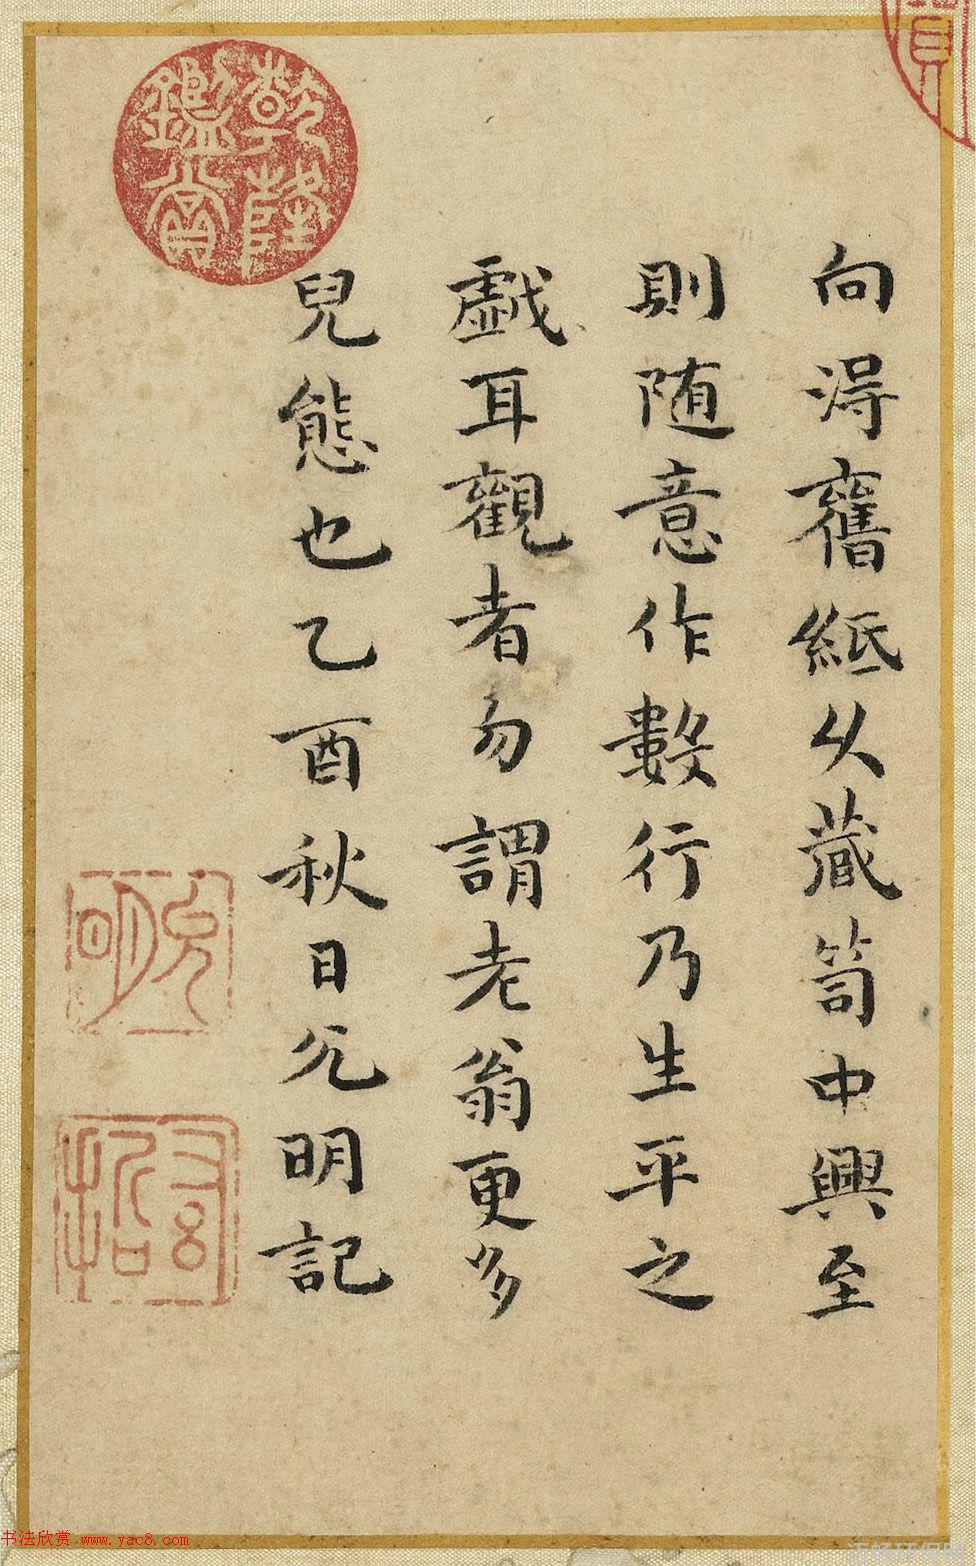 向得舊紙久藏笥中興至
則随意作數行乃生平之
戯耳觀者勿謂老翁更多
兒態也乙酉秋日允明記
乾隆鑑賞
允明
书法欣赏 www.yac8.com